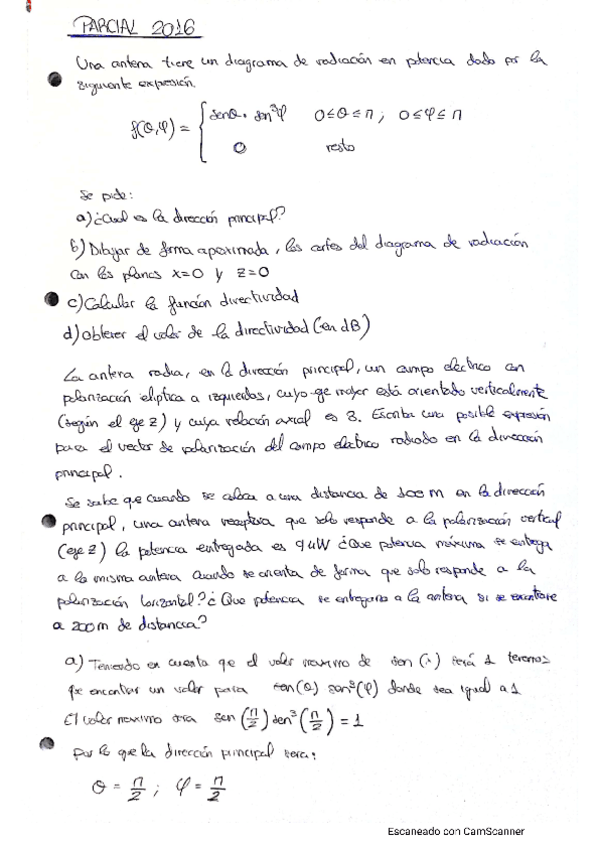 PARCIAL 2016
Una antena tiene un diagrama de radiación en potencia dado por la
siguiente expresión.
f(θ,φ) = { senθ · sen³φ   0≤θ≤π ; 0≤φ≤π
0   resto
Se pide:
a) ¿Cual es la dirección principal?
b) Dibujar de forma aproximada, los cortes del diagrama de radiación
con los planos x=0 y z=0
c) Calcular la función directividad
d) Obtener el valor de la directividad (en dB)
La antena radia, en la dirección principal, un campo eléctrico con
polarización elíptica a izquierdas, cuyo eje mayor está orientado verticalmente
(según el eje z) y cuya relación axial es 3. Escriba una posible expresión
para el vector de polarización del campo electrico radiado en la dirección
principal.
Se sabe que cuando se coloca a una distancia de 100 m en la dirección
principal, una antena receptora que solo responde a la polarización vertical
(eje z) la potencia entregada es 9 μW ¿Que potencia máxima se entrega
a la misma antena cuando se orienta de forma que solo responde a la
polarización horizontal? ¿Que potencia se entregaria a la antena si se encontrase
a 200m de distancia?
a) Teniendo en cuenta que el valor maximo de sen(x) será 1 tenemos
que encontrar un valor para sen(θ) sen³(φ) donde sea igual a 1
El valor maximo sera sen(π/2) sen³(π/2) = 1
por lo que la dirección principal sera:
θ = π/2 ; φ = π/2
Escaneado con CamScanner